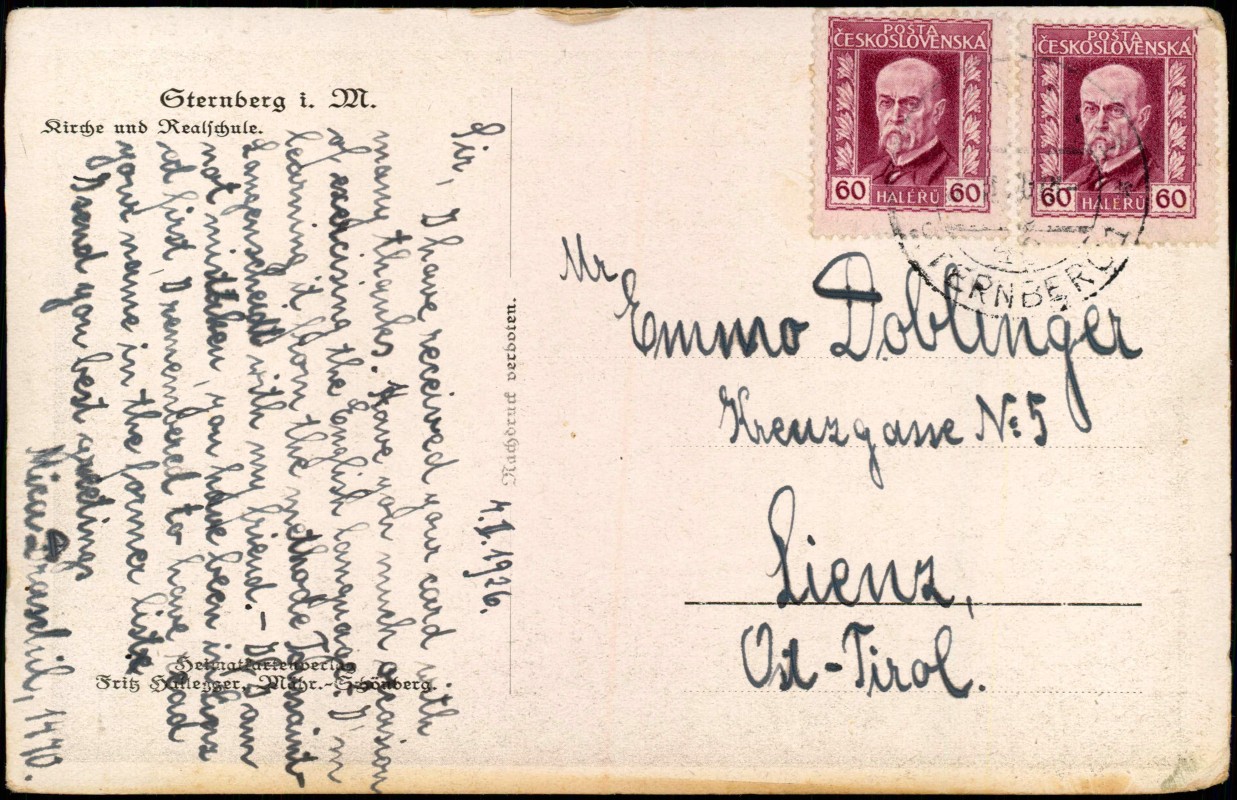 Sternberg i. M.
Kirche und Realschule.
4.I.1926.
Sir, I have received your card with
many thanks. Have you much occasion
of exercising the English language, I'm
learning it from the methode Toussaint
Langenscheidt with my friend. – If I am
not mistaken, you have been in Linz
at first, I remembered to have had
your name in the former liste
I send you best greetings
1470.
Heimatkartenverlag
Fritz Hallegger, Mähr.-Schönberg.
Nachdruck verboten.
POŠTA
ČESKOSLOVENSKÁ
60 HALÉŘŮ 60
POŠTA
ČESKOSLOVENSKÁ
60 HALÉŘŮ 60
STERNBERG 1
Mr
Emmo Doblinger
Kreuzgasse № 5
Lienz,
Ost-Tirol.